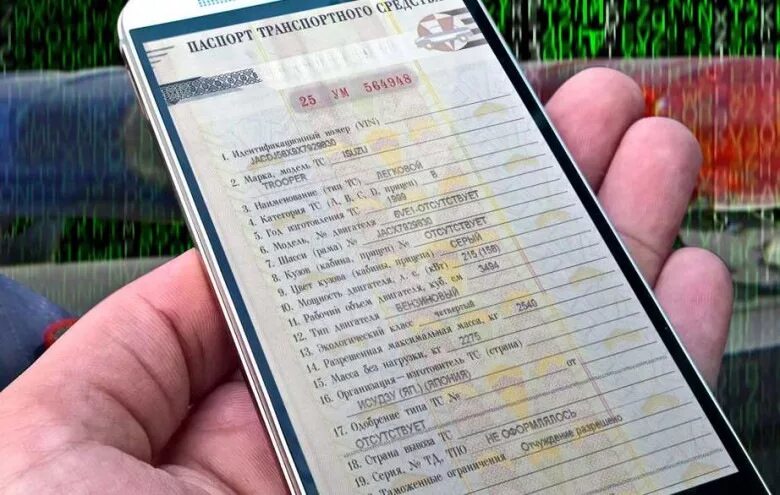 ПАСПОРТ ТРАНСПОРТНОГО СРЕДСТВ
25 УМ 564948
1. Идентификационный номер (VIN)
JACDJ58X8X7929830
2. Марка, модель ТС ISUZU
TROOPER
3. Наименование (тип ТС) ЛЕГКОВОЙ
4. Категория ТС (А, В, С, D, прицеп) B
5. Год изготовления ТС 1999
6. Модель, № двигателя 6VE1-ОТСУТСТВУЕТ
7. Шасси (рама) № JACX7929830
8. Кузов (кабина, прицеп) № ОТСУТСТВУЕТ
9. Цвет кузова (кабины, прицепа) СЕРЫЙ
10. Мощность двигателя, л. с. (кВт) 215 (158)
11. Рабочий объем двигателя, куб. см 3494
12. Тип двигателя БЕНЗИНОВЫЙ
13. Экологический класс четвертый
14. Разрешенная максимальная масса, кг 2549
15. Масса без нагрузки, кг 2275
16. Организация—изготовитель ТС (страна)
ИСУДЗУ (ЯП.) (ЯПОНИЯ)
17. Одобрение типа ТС № от
ОТСУТСТВУЕТ
18. Страна вывоза ТС
19. Серия, № ТД, ТПО НЕ ОФОРМЛЯЛОСЬ
Таможенные ограничения Отчуждение разрешено